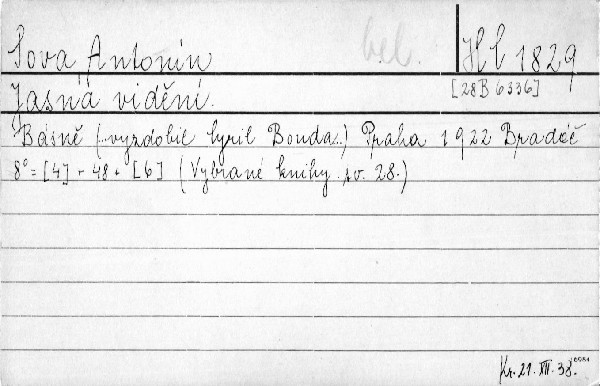 Sova Antonín bel. Hb 1829
Jasná vidění. [28B 6336]
Básně (..vyzdobil Cyril Bouda..) Praha 1922 Bradáč
8° = [4] - 48 + [6] (Vybrané knihy sv. 28.)
Kr. 21. XII. 38.